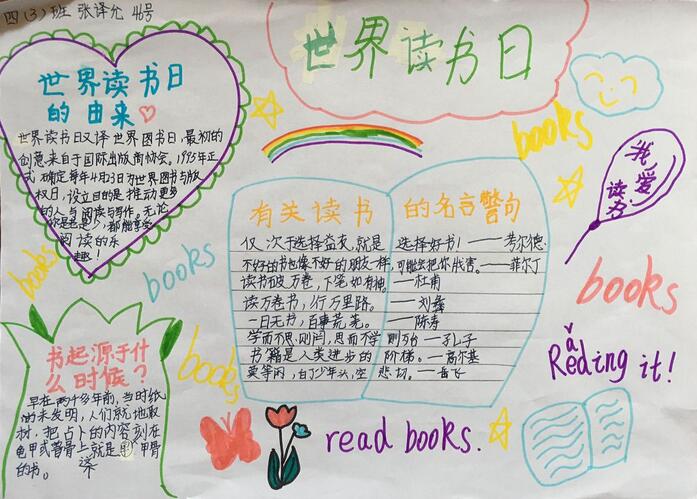 四(3)班 张译允 46号
世界读书日
世界读书日
的由来
世界读书日又译世界图书日,最初的
创意来自于国际出版商协会。1995年正
式确定每年4月23日为世界图书与版
权日,设立目的是推动更多
的人与阅读与写作。无论
你是老是少,都能享受
阅读的乐
趣!
books
我爱
读书
有关读书 的名言警句
仅次于选择益友,就是 选择好书!——考尔德
不好的书也像不好的朋友一样,可能会把你戕害。——菲尔丁
读书破万卷,下笔如有神。——杜甫
读万卷书,行万里路。——刘彝
一日无书,百事荒芜。——陈寿
学而不思则罔,思而不学 则殆——孔子
书籍是人类进步的 阶梯。——高尔基
莫等闲,白了少年头,空 悲切。——岳飞
books
books
books
books
书起源于什
么时候?
早在两千多年前,当时纸
尚未发明,人们就地取
材,把占卜的内容刻在
龟甲或兽骨上就是甲骨
的书。
Reding it!
a
read books.